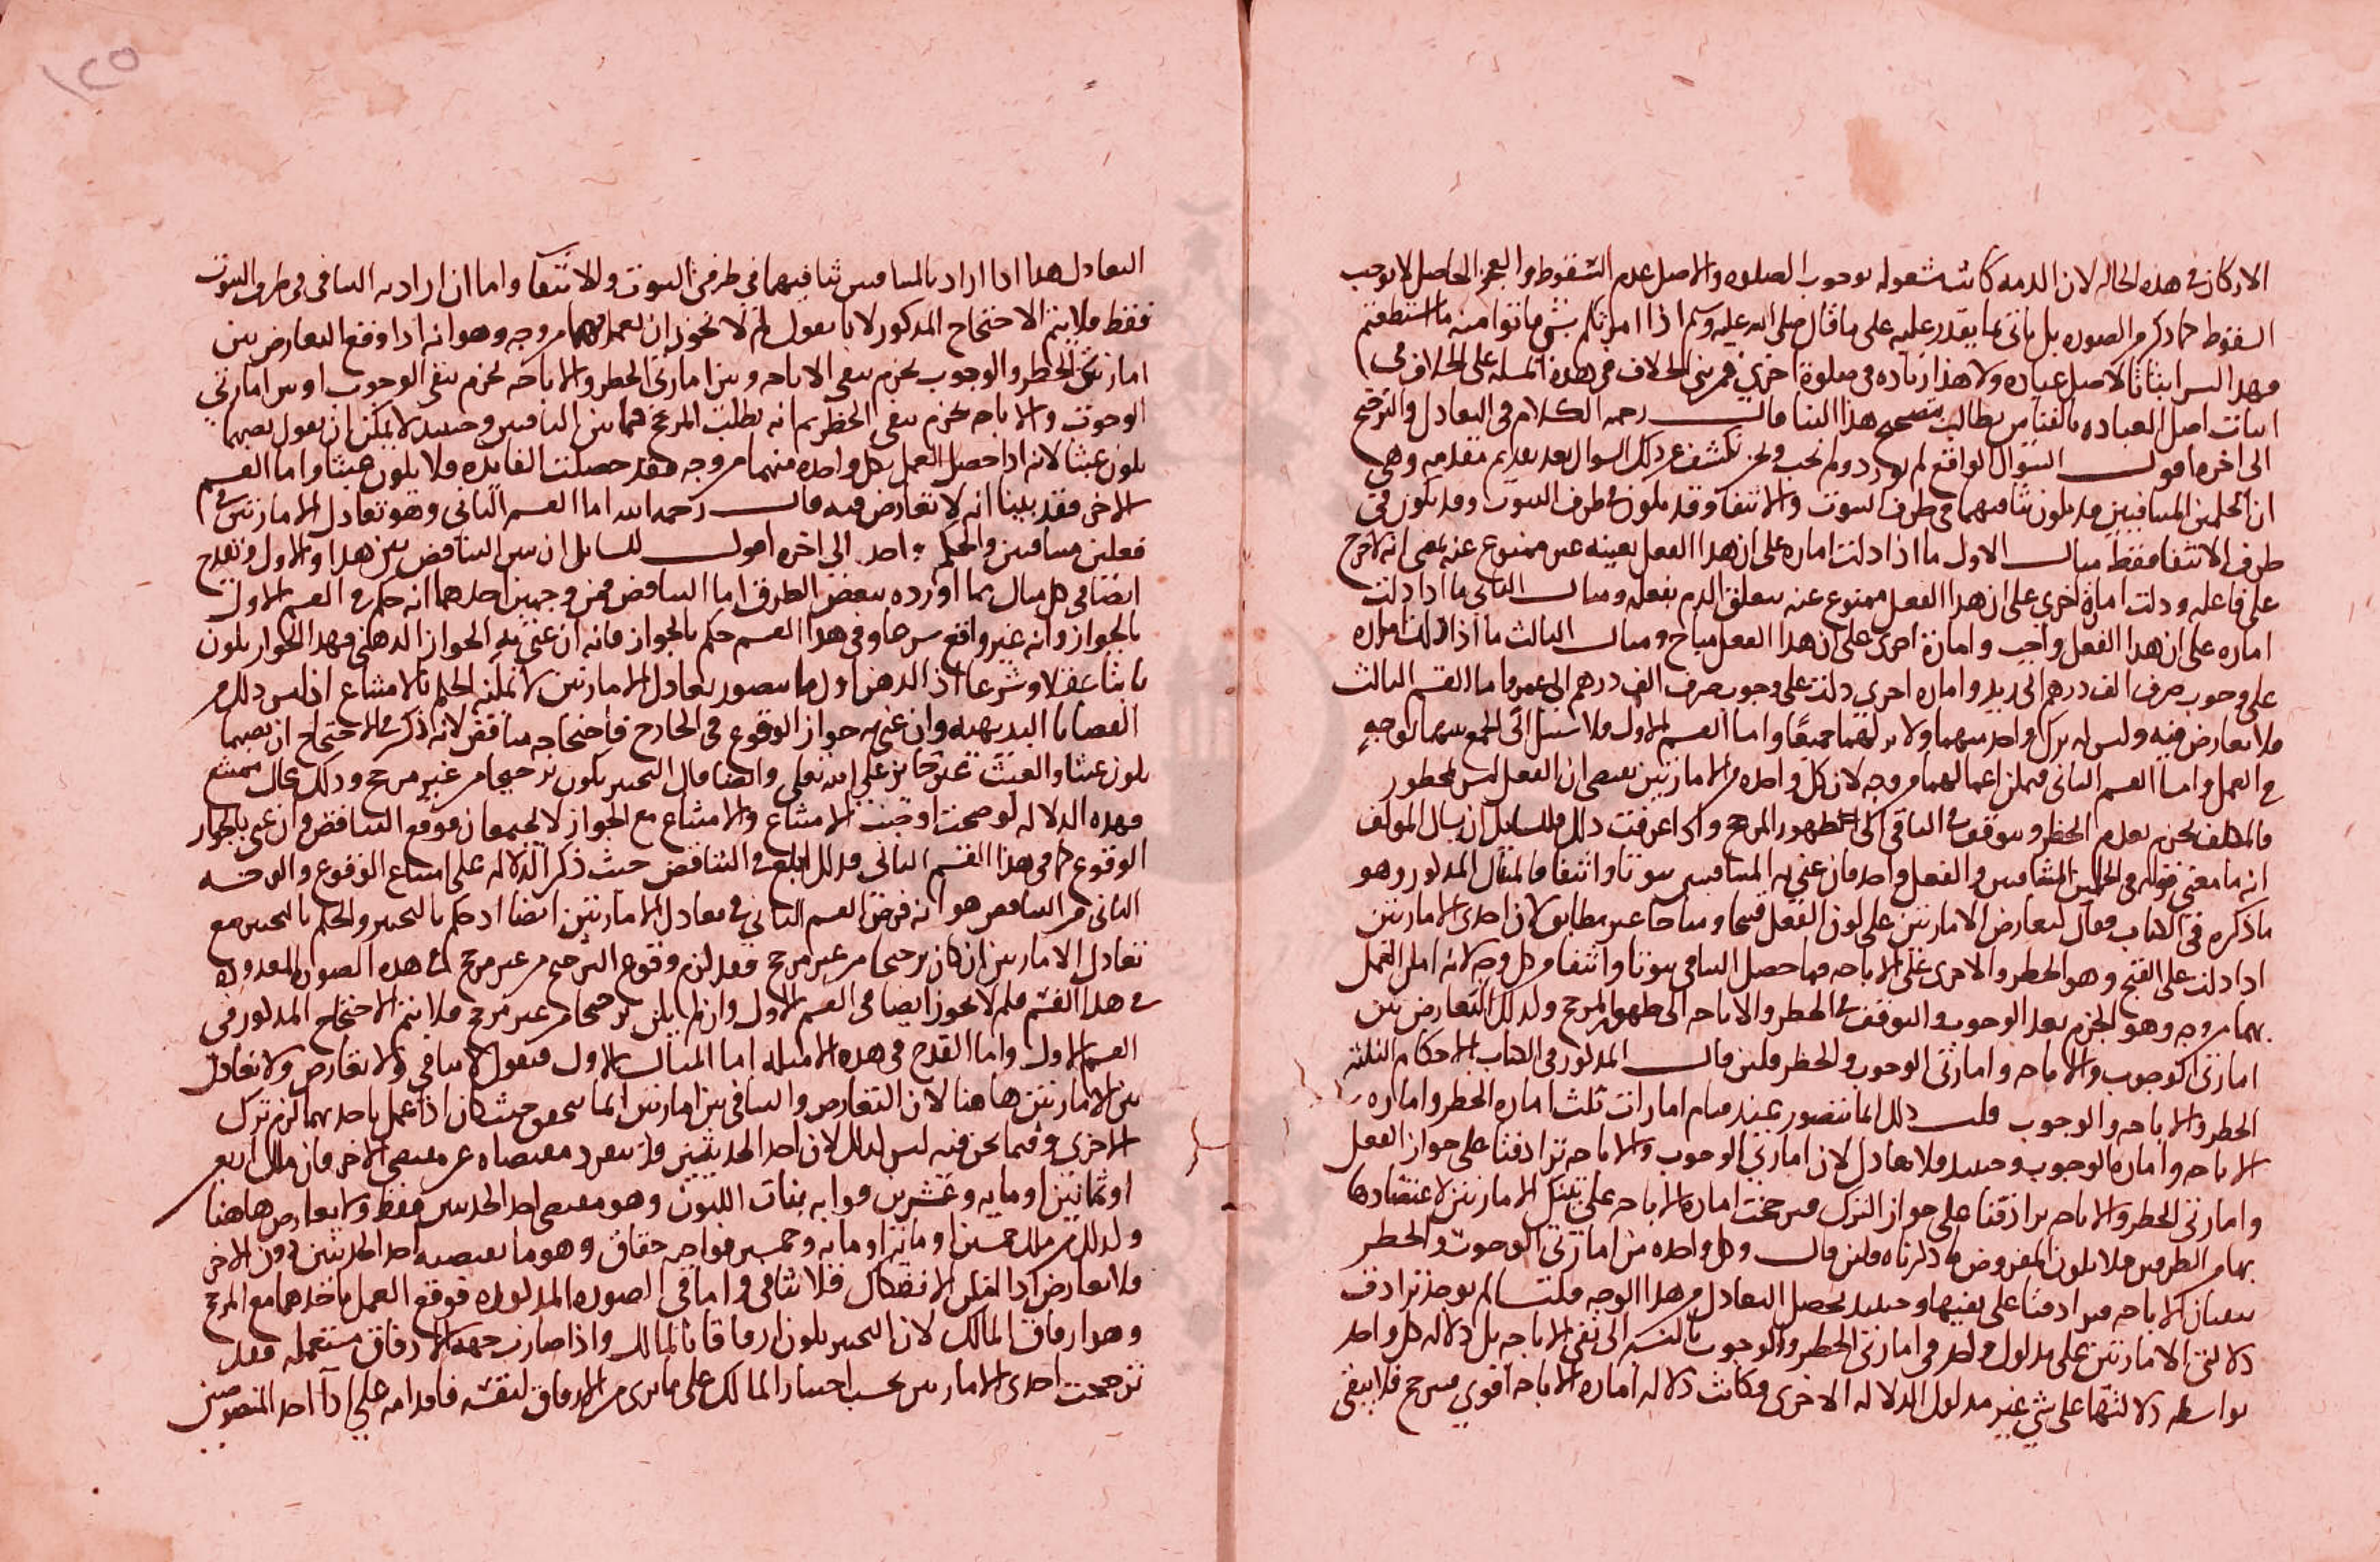 الاركان فى هذه الحاله لان الذمه كانت مشغوله بوجوب الصلوه والاصل عدم السقوط والعجز الحاصل لا يوجب
السقوط كما ذكر من الصوره بل ياتى بما يقدر عليه على ما قال صلى الله عليه وسلم اذا امرتكم بشى فاتوا منه ما استطعتم
فهذا ليس اثباتا لاصل عباده ولا هذا زياده فى صلوة اخرى فمن بنى الخلاف فى هذه المسله على الخلاف فى
اثبات اصل العباده بالقياس يطالب بتصحيح هذا البنا قال رحمه الكلام فى التعادل والترجيح
الى اخره اقول السوال الواقع لم يورد ولم يجب ونحن نكشف عن ذلك السوال بعد تقديم مقدمه وهى
ان الحكمين المتنافيين قد يكون تنافيهما فى طرف الثبوت والانتفا وقد يكون فى طرف الثبوت وقد يكون فى
طرف الانتفا فقط مثال الاول ما اذا دلت اماره على ان هذا الفعل بعينه غير ممنوع عنه بمعنى انه لا حرج
على فاعله ودلت امارة اخرى على ان هذا الفعل ممنوع عنه يتعلق الذم بفعله ومثال الثانى ما اذا دلت
اماره على ان هذا الفعل واجب وامارة اخرى على ان هذا الفعل مباح ومثال الثالث ما اذا دلت اماره
على وجوب صرف الف درهم الى زيد واماره اخرى دلت على وجوب صرف الف درهم الى عمرو اما القسم الثالث
فلا تعارض فيه وليس له ترك واحد منهما ولا تركهما جميعا واما القسم الاول فلا سبيل الى الجمع بينهما بوجه
فى العمل واما القسم الثانى فيمكن اعمالهما من وجه لان كل واحده من الامارتين يقتضى ان الفعل ليس بمحظور
فالمكلف يجزم بعدم الحظر ويتوقف فى الباقى الى ظهور المرجح واذا عرفت ذلك فللسايل ان يسال المولف
انه ما معنى قوله فى الحكمين المتنافيين والفعل واحد فان عنى به المتنافيين ثبوتا وانتفا فالمثال المذكور وهو
ما ذكره فى الكتاب فقال كتعارض الامارتين على كون الفعل قبيحا ومباحا غير مطابق لان احدى الامارتين
اذا دلت على القبح وهو الحظر والاخرى على الاباحه فما حصل التنافى ثبوتا وانتفا من كل وجه لانه امكن العمل
بهما من وجه وهو الجزم بعدم الوجوب والتوقف فى الحظر والاباحه الى ظهور المرجح وكذلك التعارض بين
امارتى الوجوب والاباحه وامارتى الوجوب والحظر فلئن قال المذكور فى الكتاب الاحكام الثلثه
الحظر والاباحه والوجوب قلت ذلك انما يتصور عند قيام امارات ثلث اماره الحظر واماره
الاباحه واماره الوجوب وحينيذ فلا تعادل لان امارتى الوجوب والاباحه ترادفتا على جواز الفعل
وامارتى الحظر والاباحه ترادفتا على جواز الترك فترجحت اماره الاباحه على تينك الامارتين لاعتضادها
بهما من الطرفين فلا يكون المفروض ما ذكرناه فلئن قال وكل واحده من امارتى الوجوب والحظر
ينفيان الاباحه فترادفتا على نفيها وحينيذ يحصل التعادل من هذا الوجه قلت لم يوجد ترادف
دلالتى الامارتين على مدلول واحد فى امارتى الحظر والوجوب بالنسبه الى نفى الاباحه بل دلاله كل واحد
بواسطه دلالتها على شى غير مدلول الدلاله الاخرى فكانت دلاله اماره الاباحه اقوى فترجح فلا يبقى
التعادل هذا اذا اراد بالمتنافيين تنافيهما فى طرفى الثبوت والانتفا واما ان اراد به التنافى فى طرف الثبوت
فقط فلا يتم الاحتجاج المذكور لانا نقول لم لا يجوز ان يعمل بهما من وجه وهو انه اذا وقع التعارض بين
امارتى الحظر والوجوب يجزم بنفى الاباحه وبين امارتى الحظر والاباحه يجزم بنفى الوجوب او بين امارتى
الوجوب والاباحه يجزم بنفى الحظر ثم انه يطلب المرجح فيما بين الباقيين وحينيذ لا يمكن ان يقول نصبهما
يكون عبثا لانه اذا حصل العمل بكل واحده منهما من وجه فقد حصلت الفايده فلا يكون عبثا واما القسم
الاخر فقد بينا انه لا تعارض فيه قال رحمه الله اما القسم الثانى وهو تعادل الامارتين فى
فعلين متنافيين والحكم واحد الى اخره اقول للسايل ان يبين التناقض بين هذا والاول ويقدح
ايضا فى كل مثال مما اورده ببعض الطرق اما التناقض فمن وجهين احدهما انه حكم فى القسم الاول
بالجواز وانه غير واقع شرعا وفى هذا القسم حكم بالجواز فانه ان عنى به الجواز الذهنى فهذا الجواز يكون
ثابتا عقلا وشرعا اذ الذهن اول ما يتصور تعادل الامارتين لا يمكنه الحكم بالامتناع اذ ليس ذلك من
القضايا البديهيه وان عنى به جواز الوقوع فى الخارج فاحتجاجه مناقض لانه ذكر فى الاحتجاج ان نصبهما
يكون عبثا والعبث غير جايز على الله تعلى وايضا قال التخيير يكون ترجيحا من غير مرجح وذلك محال ممتنع
فهذه الدلاله لو صحت اوجبت الامتناع والامتناع مع الجواز لا يجتمعان فوقع التناقض وان عنى بالجواز
الوقوع كما فى هذا القسم الثانى فذلك ابلغ فى التناقض حيث ذكر الدلاله على امتناع الوقوع والوجه
الثانى من التناقض هو انه فرض القسم الثانى فى تعادل الامارتين ايضا اذ حكم بالتخيير والحكم بالتخيير مع
تعادل الامارتين ان كان ترجيحا من غير مرجح فقد لزم وقوع الترجيح من غير مرجح فى هذه الصور المعدوده
فى هذا القسم فلم لا يجوز ايضا فى القسم الاول وان لم يكن ترجيحا من غير مرجح فلا يتم الاحتجاج المذكور فى
القسم الاول واما القدح فى هذه الامثله اما المثال الاول فنقول لا تنافى ولا تعارض ولا تعادل
بين الامارتين هاهنا لان التعارض والتنافى بين امارتين انما يتحقق حيث كان اذا عمل باحديهما لزم ترك
الاخرى وفيما نحن فيه ليس كذلك لان احد الحديثين قد ينفرد مقتضاه عن مقتضى الاخر فان ملك اربع
او ثمانين او مايه وعشرين فواجبه بنات اللبون وهو مقتضى احد الحديثين فقط ولا تعارض هاهنا
وكذلك من ملك خمسين او مايه او مايه وخمسين فواجبه حقاق وهو ما يقتضيه احد الحديثين دون الاخر
فلا تعارض اذا امكن الانفكاك فلا تنافى واما فى الصوره المذكوره فوقع العمل باخدهما مع المرجح
وهو ارفاق المالك لان التخيير يكون ارفاقا بالمالك واذا صارت جهه الارفاق مستعمله فقد
ترجحت احدى الامارتين بحسب اختيار المالك على ما يرى من الارفاق لنفسه فاقدامه على ادآ احد المنصوصين